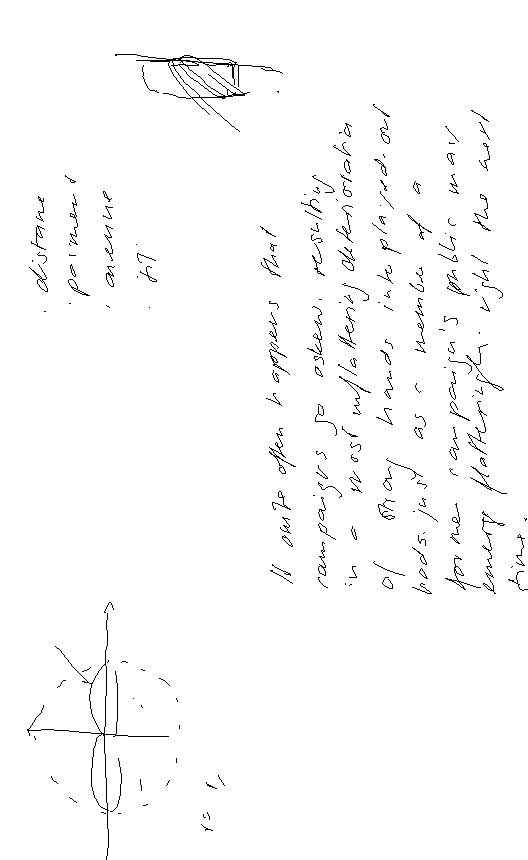 . distane
. paiment
, avenue
It quite often happens that
campaigns go askew. resulting
in a most unflattering deterioration
of strong hands into played-out
bods. just as a member of a
former campaign's public may
emerge flatteringly. right the next
time.
r=